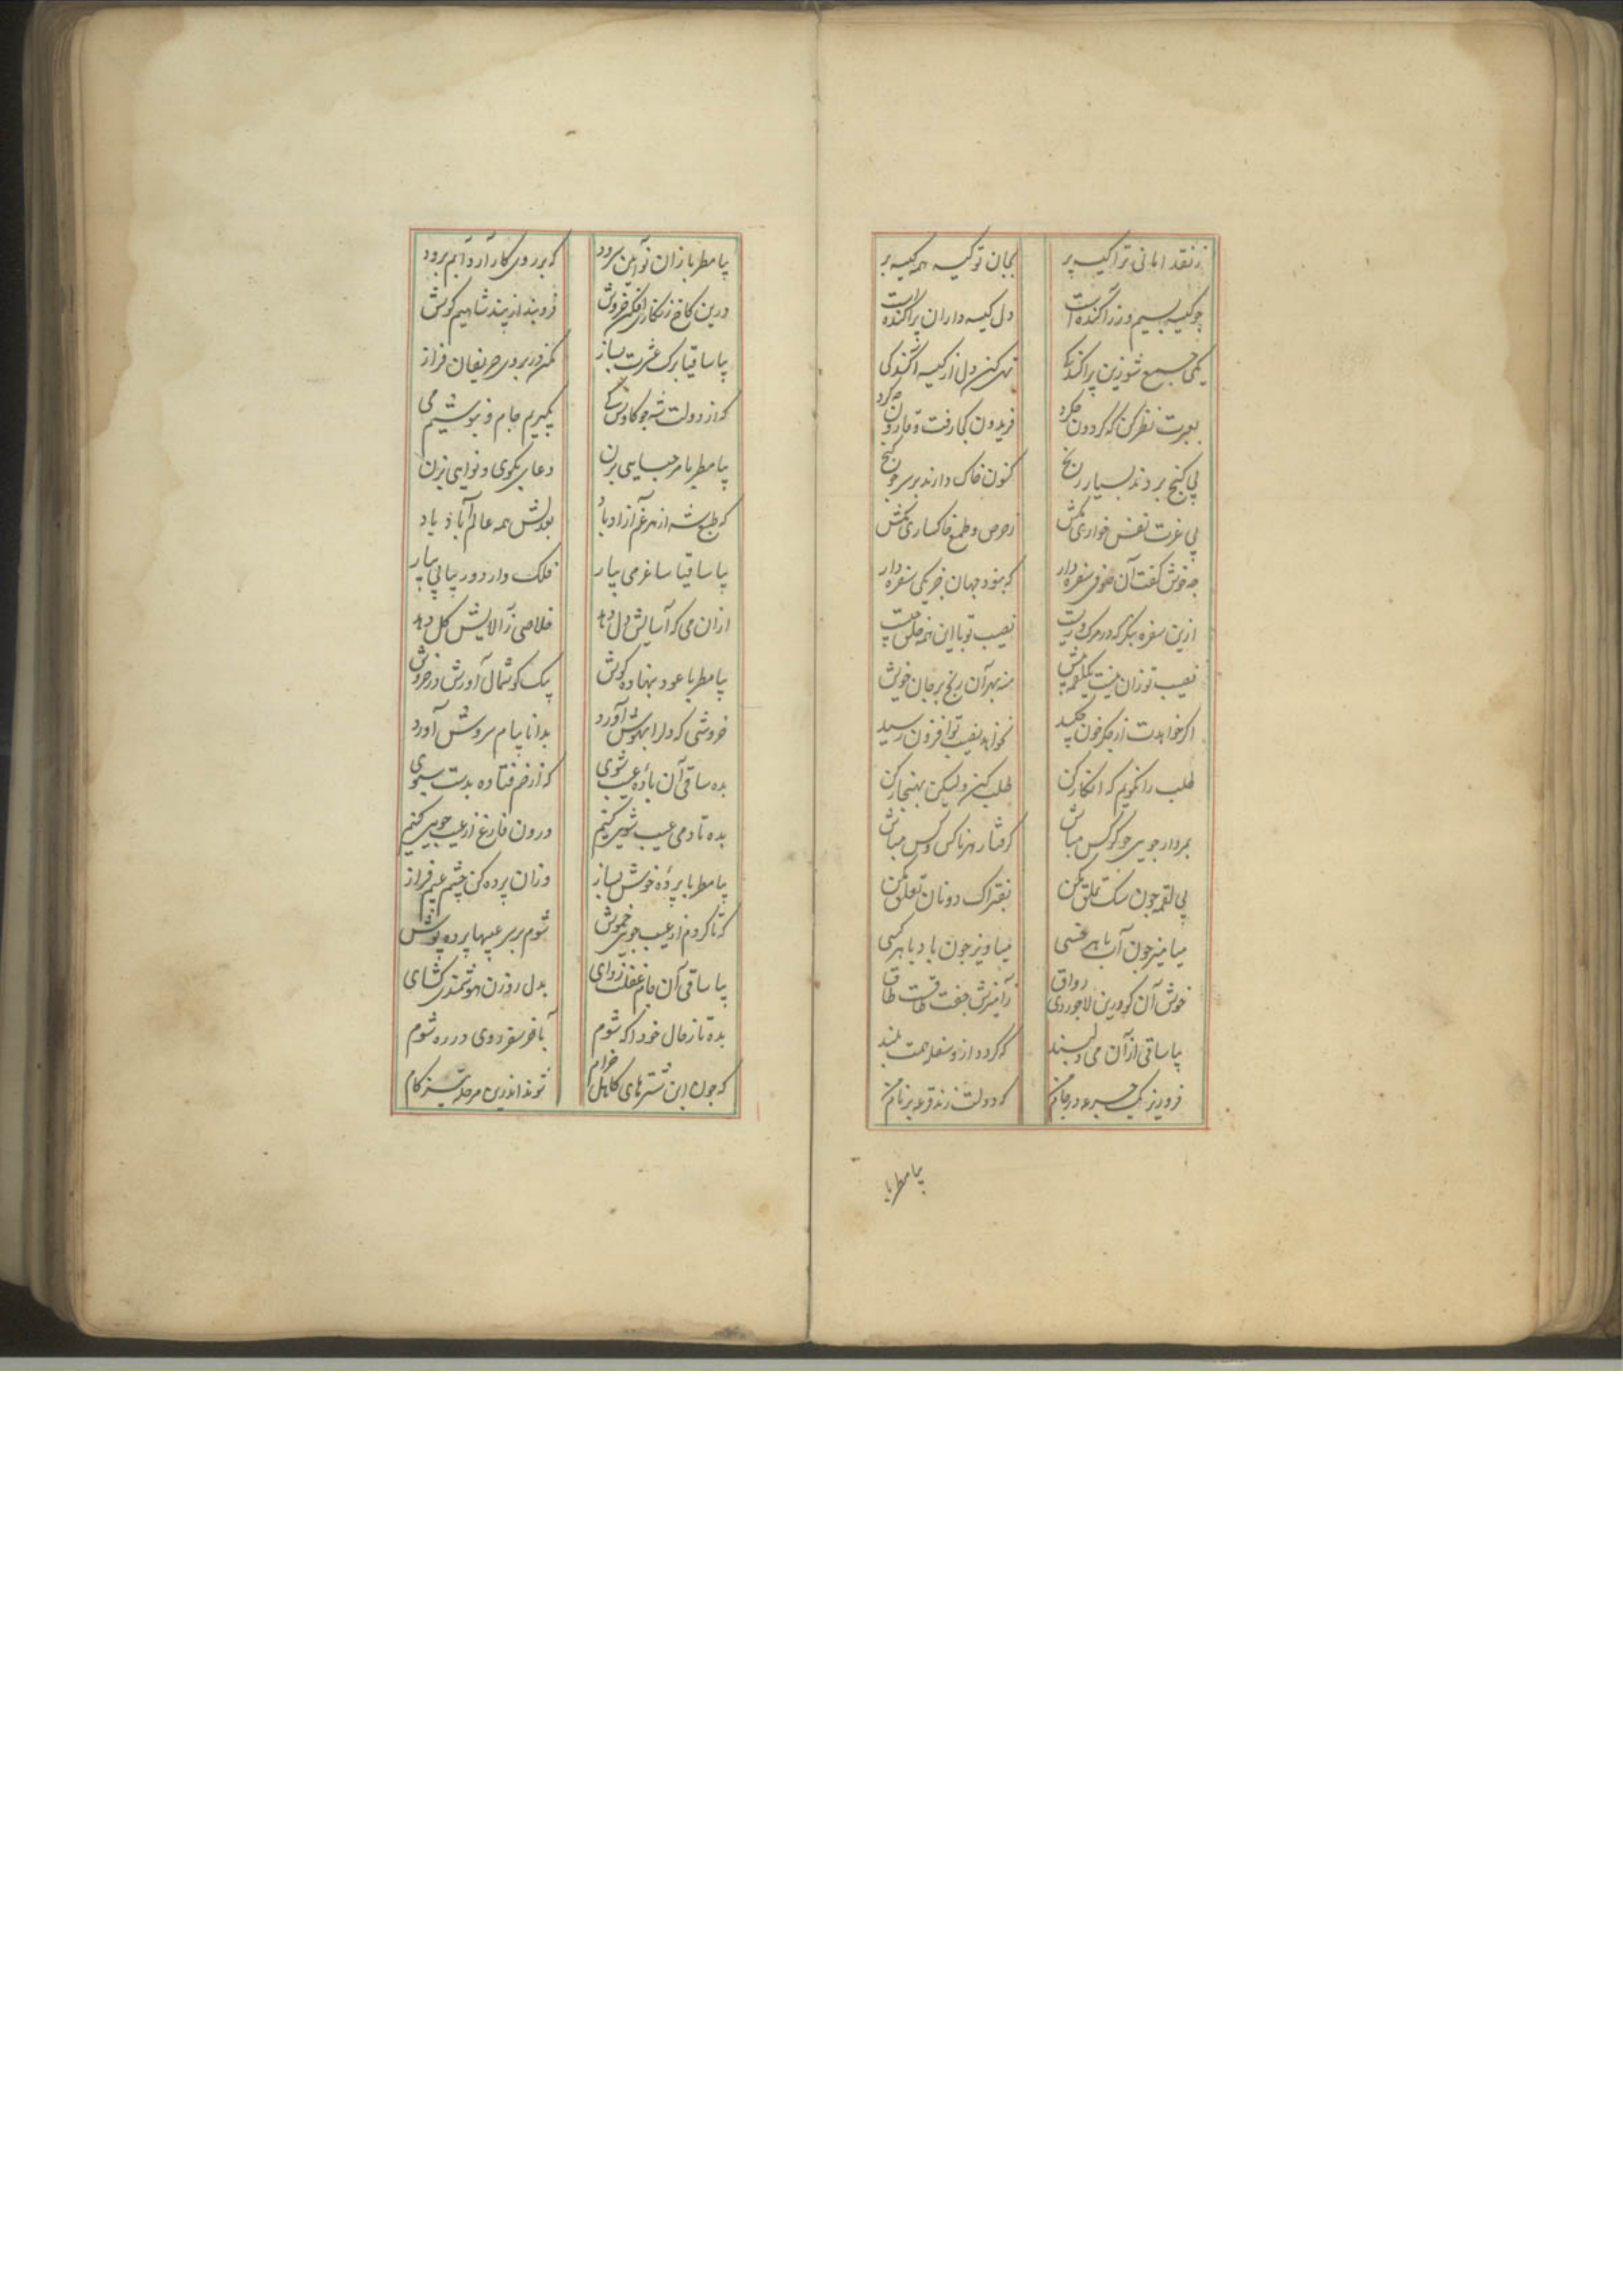 ز نقد امانی ترا کیسه پر بجان تو کیسه همه کیسه بر
چو کیسه بسیم و زر آکنده است دل کیسه داران پراکنده است
یکی جمع شو زین پراکندگی تهی کن دل از کیسه آکندگی
بعبرت نظر کن که گردون چه کرد فریدون کجا رفت و قارون چه کرد
پی گنج بردند بسیار رنج کنون خاک دارند بر سر چو گنج
پی عزت نفس خواری مکش ز حرص و طمع خاکساری مکش
چه خوش گفت آن صوفی سفره دار که نبود جهان جز یکی سفره وار
ازین سفره بنگر که در مرگ و زیست نصیب تو با این همه خلق چیست
نصیب تو زان نیست یک لقمه بیش منه بهر آن رنج بر جان خویش
اگر خواهدت از جگر خون چکید نخواهد نصیبت توا فزون رسید
طلب را نگویم که انکار کن طلب کن ولیکن بهنجار کن
بمردار جویی چو کرکس مباش گرفتار هر ناکس و کس مباش
پی لقمه چون سگ تملق مکن بفتراک دونان تعلق مکن
میامیز چون آب با هر خسی میاویز چون باد با هر کسی
خوش آن کو درین لاجوردی رواق ز آمیزش جفت طاقست طاق
بیا ساقی از آن می دلپسند که گردد ازو سفله همت بلند
فرو ریز یک جرعه در جام من که دولت زند قرعه بر نام من
بیا مطربا
بیا مطربا زان نو آیین سرود که بر روی کار آرد آبم برود
درین کاخ زنگاری افکن خروش فرو بند از پند شاهیم گوش
بیا ساقیا برک عشرت بساز مکن در بروی حریفان فراز
که از دولت شه چو کاوس کی بگیریم جام و بنوشیم می
بیا مطربا مرحبایی بزن دعایی بگوی و نوایی بزن
که طبع شه از هر غم آزاد باد بعدلش همه عالم آباد باد
بیا ساقیا ساغر می بیار فلک وار دور پیاپی بیار
ازان می که آسایش دل دهد خلاصی ز آلایش گل دهد
بیا مطربا عود بنهاده گوش بیک گوشمال آورش در خروش
خروشی که دل را بهوش آورد بدانا پیام سروش آورد
بده ساقی آن باده عیب شوی که از خم فتاده بدست سبوی
بده تا دمی عیب شویی کنیم درون فارغ از عیب جویی کنیم
بیا مطربا پرده خوش بساز وزان پرده کن چشم عیبم فراز
که تا گردم از عیب جویی خموش شوم بر سر عیبها پرده پوش
بیا ساقی آن جام غفلت زدای بدل روزن هوشمندی گشای
بده تا ز حال خود آگه شوم بآخر سفر روی در ره شوم
که چون این شترهای کاهل خرام شوند اندرین مرحله تیز کام